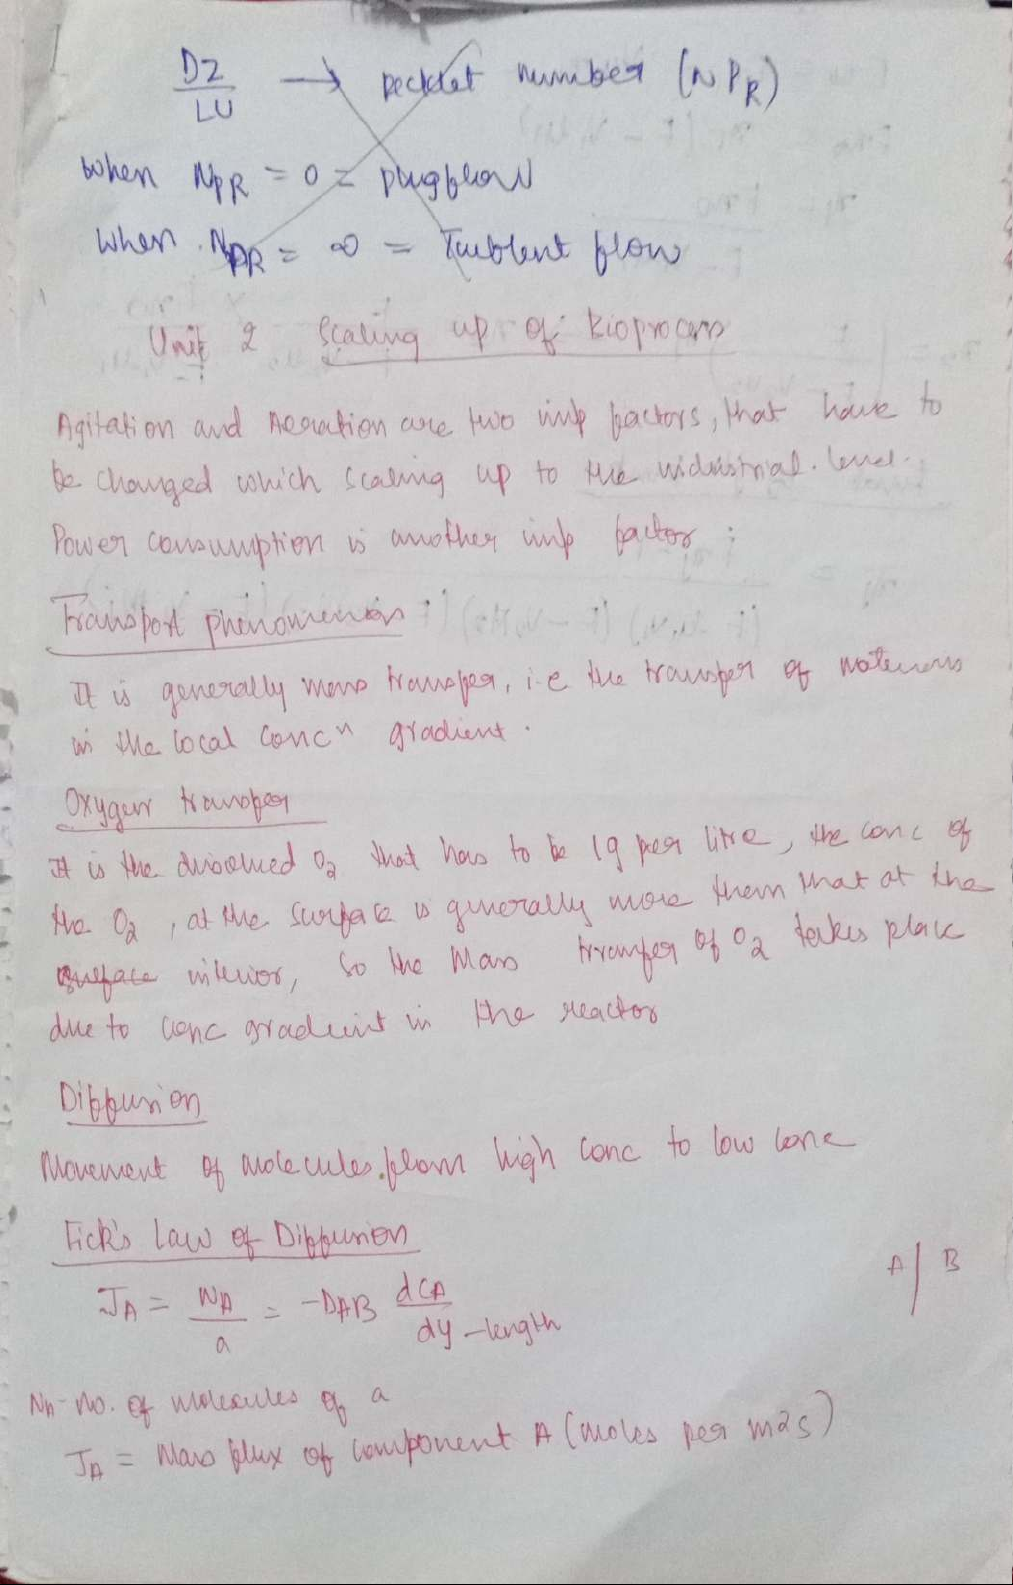 DZ/LU → pecklet number (NPR)
when NPR = 0 = plugflow
when NPR = ∞ = Turblent flow
Unit 2 Scaling up of Bioprocess
Agitation and Aeration are two imp factors, that have to
be changed which scaling up to the industrial level.
Power consumption is another imp factor
Transport phenomenon
It is generally mass transfer, i.e the transfer of materials
in the local concn gradient.
Oxygen transfer
It is the dissolved O2 that has to be 1g per litre, the conc of
the O2, at the surface is generally more than that at the
surface interior, so the Mass transfer of O2 takes place
due to conc gradient in the reactor
Diffusion
Movement of molecules from high conc to low conc
Fick's Law of Diffusion
A | B
JA = NA/a = -DAB dCA/dy - length
NA - No. of molecules of a
JA = Mass flux of component A (moles per m2s)